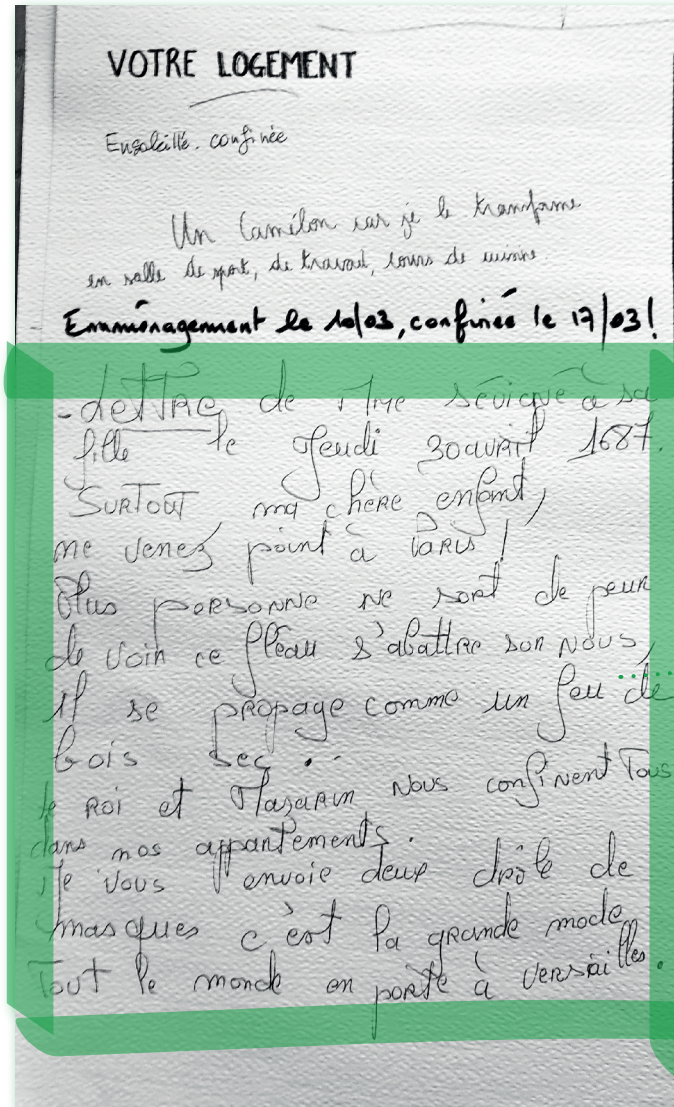 VOTRE LOGEMENT
Ensoleillé. confinée
Un Caméléon car je le transforme
en salle de sport, de travail, cours de cuisine.
Emménagement le 10/03, confinée le 17/03!
- LETTRE de Mme Sévigné à sa
fille le Jeudi 30 avril 1687.
SURTOUT, ma chère enfant,
ne venez point à PARIS!
Plus personne ne sort de peur
de voir ce fléau s'abattre sur nous,
il se propage comme un feu de
bois sec..
le Roi et Mazarin nous confinent Tous
dans nos appartements.
Je vous envoie deux drôle de
masques c'est la grande mode
Tout le monde en porte à versailles.